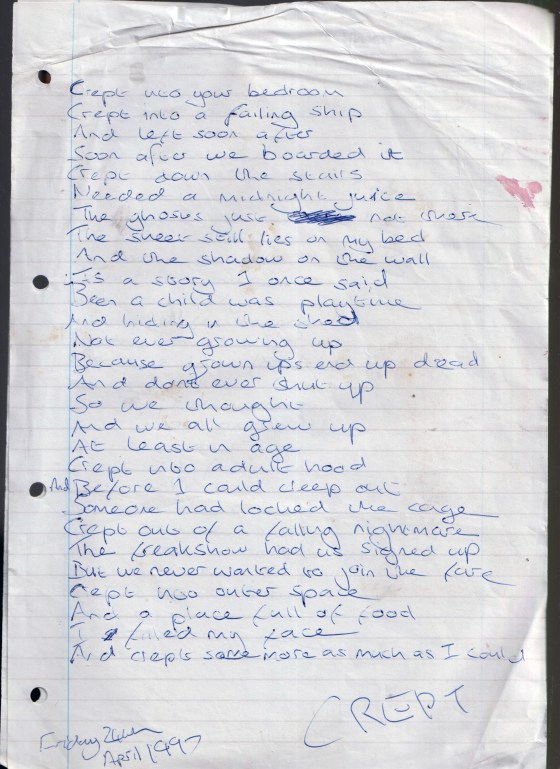 Crept into your bedroom
Crept into a failing ship
And left soon after
Soon after we boarded it
Crept down the stairs
Needed a midnight juice
The ghosts just not there
The sheet still lies on my bed
And the shadow on the wall
Its a story I once said
Been a child was playtime
And hiding in the shed
Not ever growing up
Because grown ups end up dead
And dont ever shut up
So we thought
And we all grew up
At least in age
Crept into adult hood
And Before I could creep out
Someone had locked the cage
Crept out of a falling nightmare
The freakshow had us signed up
But we never wanted to join the
Crept into outer space
And a place full of food
I filled my face
And crepts some more as much as I could
CREPT
Friday
April 1997